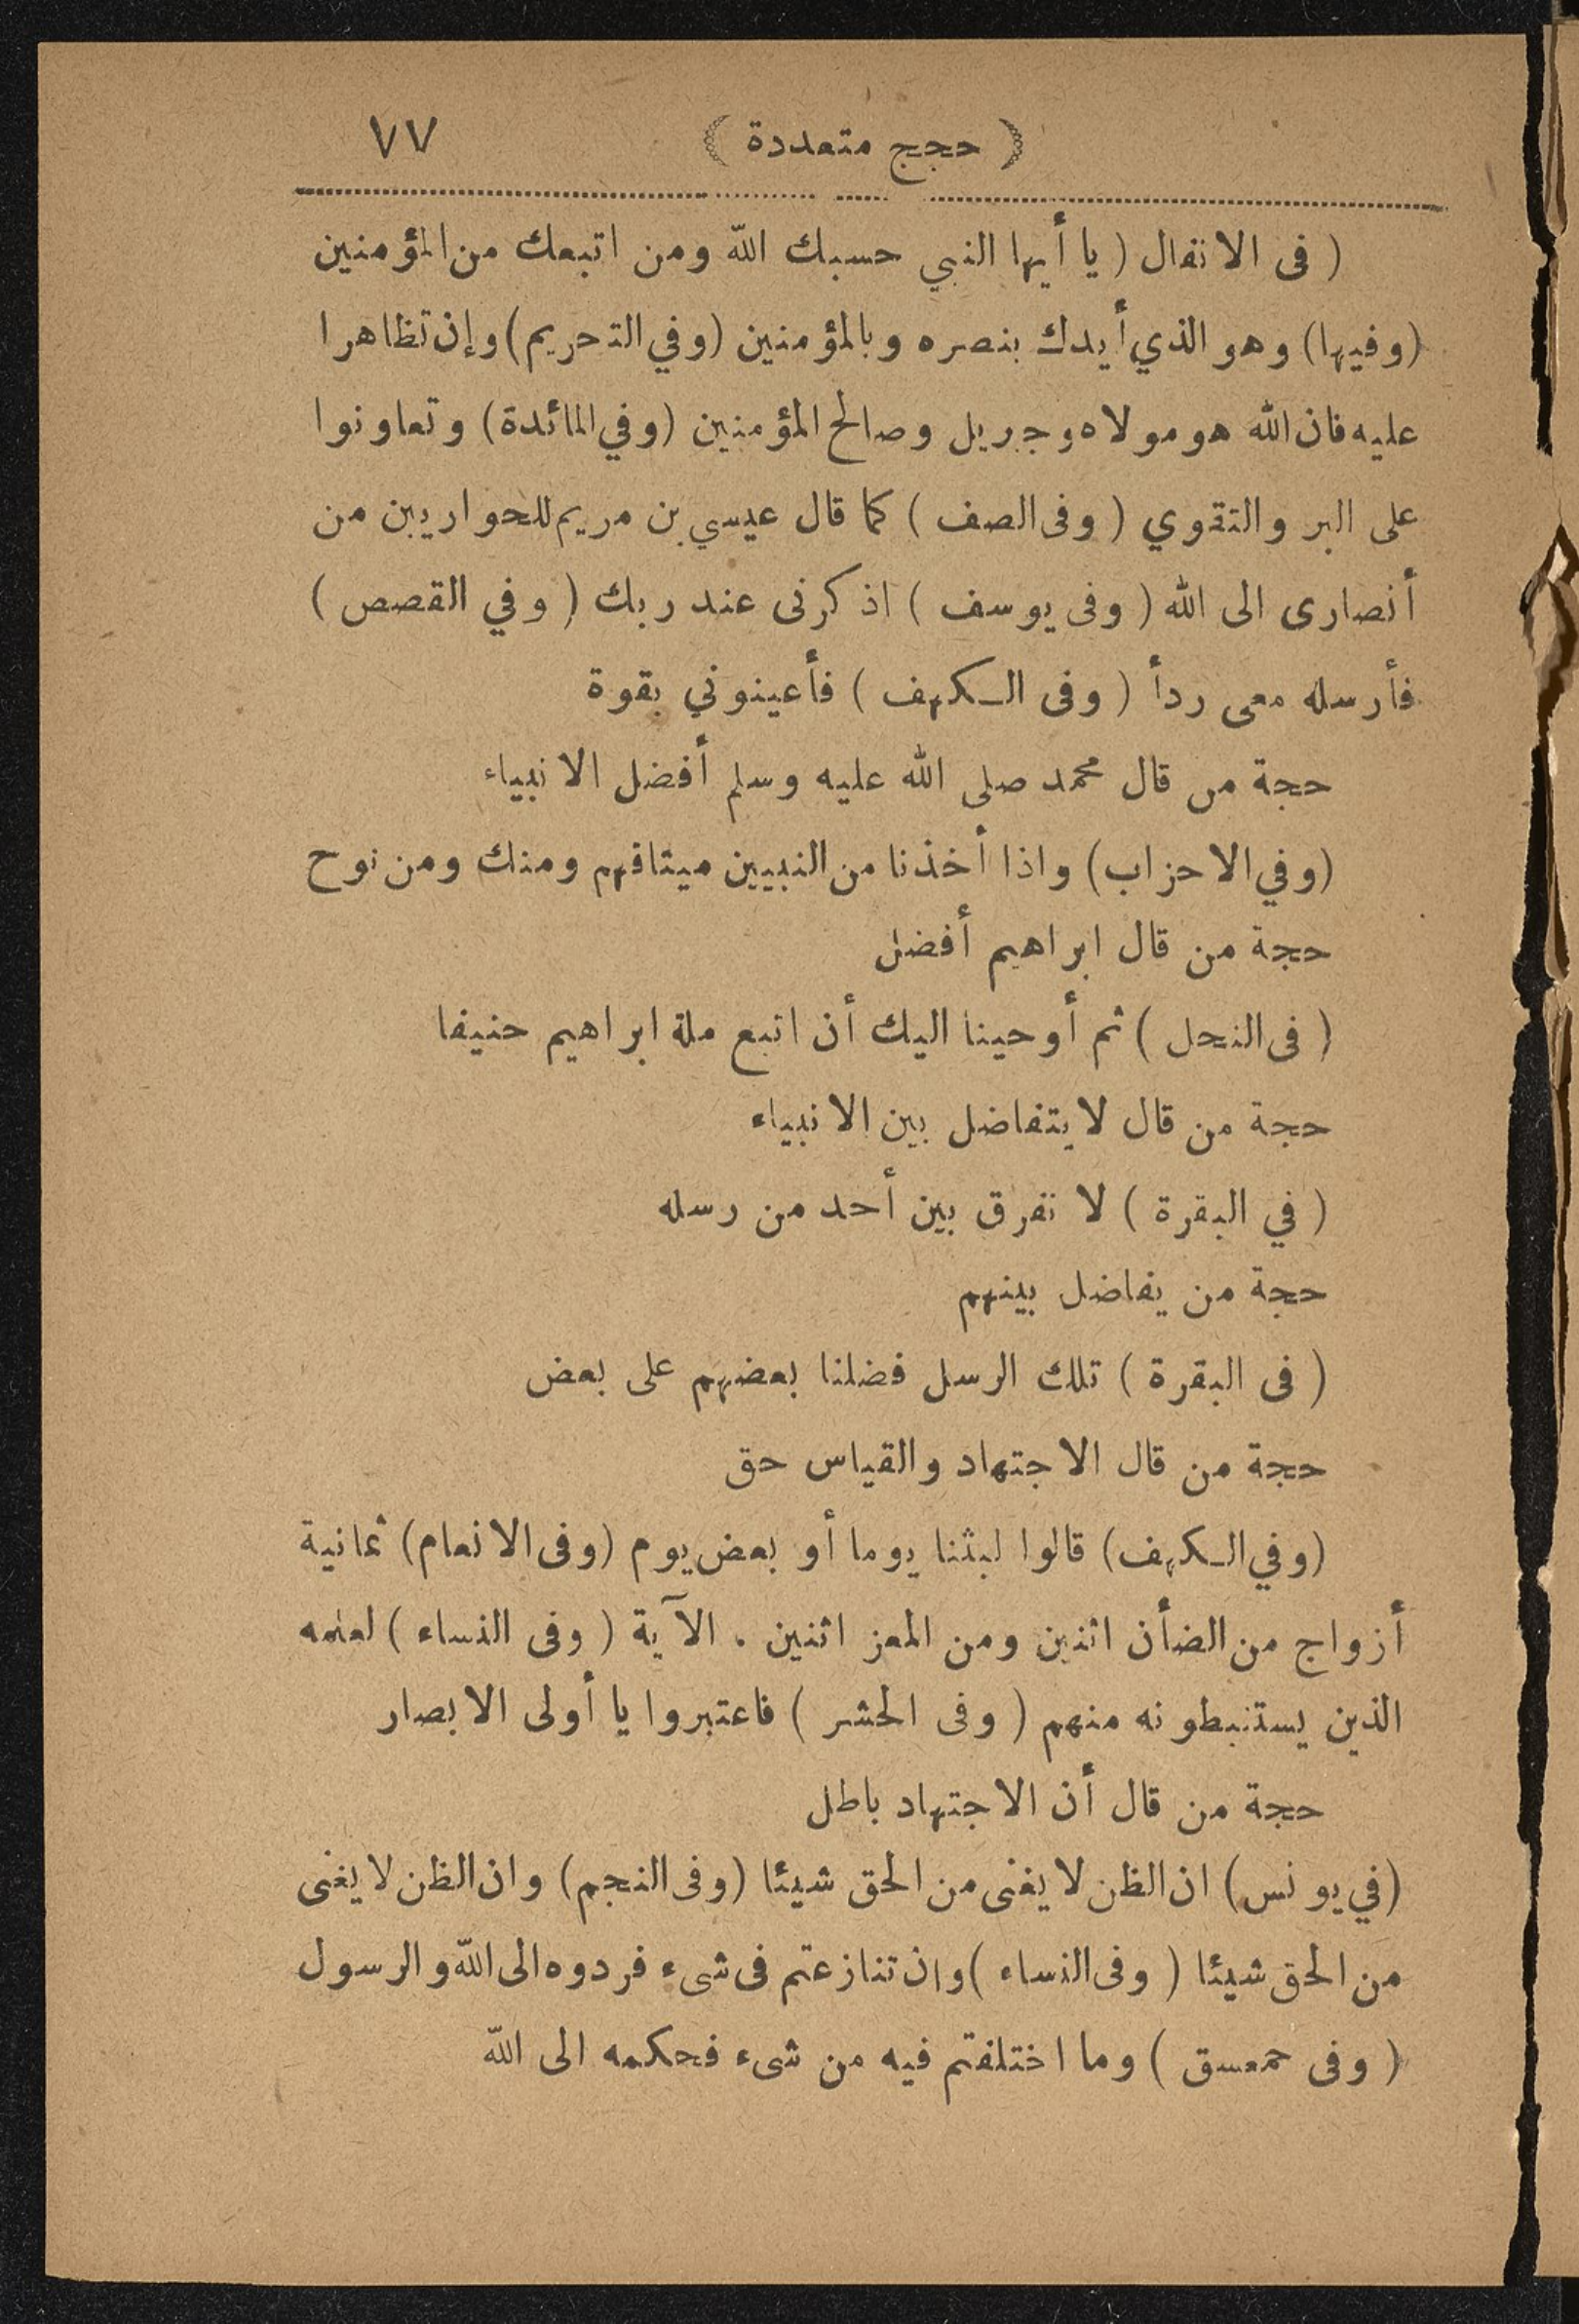 ( حجج متعددة ) ٧٧
( فى الانفال ( يا أيها النبي حسبك الله ومن اتبعك من المؤمنين
(وفيها) وهو الذي أيدك بنصره وبالمؤمنين (وفي التحريم) وإن تظاهرا
عليه فان الله هو مولاه وجبريل وصالح المؤمنين (وفي المائدة) وتعاونوا
على البر والتقوي ( وفى الصف ) كما قال عيسي بن مريم للحواريين من
أنصارى الى الله ( وفى يوسف ) اذ كرنى عند ربك ( وفي القصص )
فأرسله معى ردأ ( وفى الـكهف ) فأعينوني بقوة
حجة من قال محمد صلى الله عليه وسلم أفضل الانبياء
(وفي الاحزاب) واذا أخذنا من النبيين ميثاقهم ومنك ومن نوح
حجة من قال ابراهيم أفضل
( فى النحل ) ثم أوحينا اليك أن اتبع ملة ابراهيم حنيفا
حجة من قال لا يتفاضل بين الانبياء
( في البقرة ) لا نفرق بين أحد من رسله
حجة من يفاضل بينهم
( فى البقرة ) تلك الرسل فضلنا بعضهم على بعض
حجة من قال الاجتهاد والقياس حق
(وفي الـكهف) قالوا لبثنا يوما أو بعض يوم (وفى الانعام) ثمانية
أزواج من الضأن اثنين ومن المعز اثنين . الآية ( وفى النساء ) لعلمه
الذين يستنبطونه منهم ( وفى الحشر ) فاعتبروا يا أولى الابصار
حجة من قال أن الاجتهاد باطل
(في يونس) ان الظن لا يغنى من الحق شيئا (وفى النجم) وان الظن لا يغنى
من الحق شيئا ( وفى النساء ) وان تنازعتم فى شىء فردوه الى الله والرسول
( وفى حمعسق ) وما اختلفتم فيه من شىء فحكمه الى الله